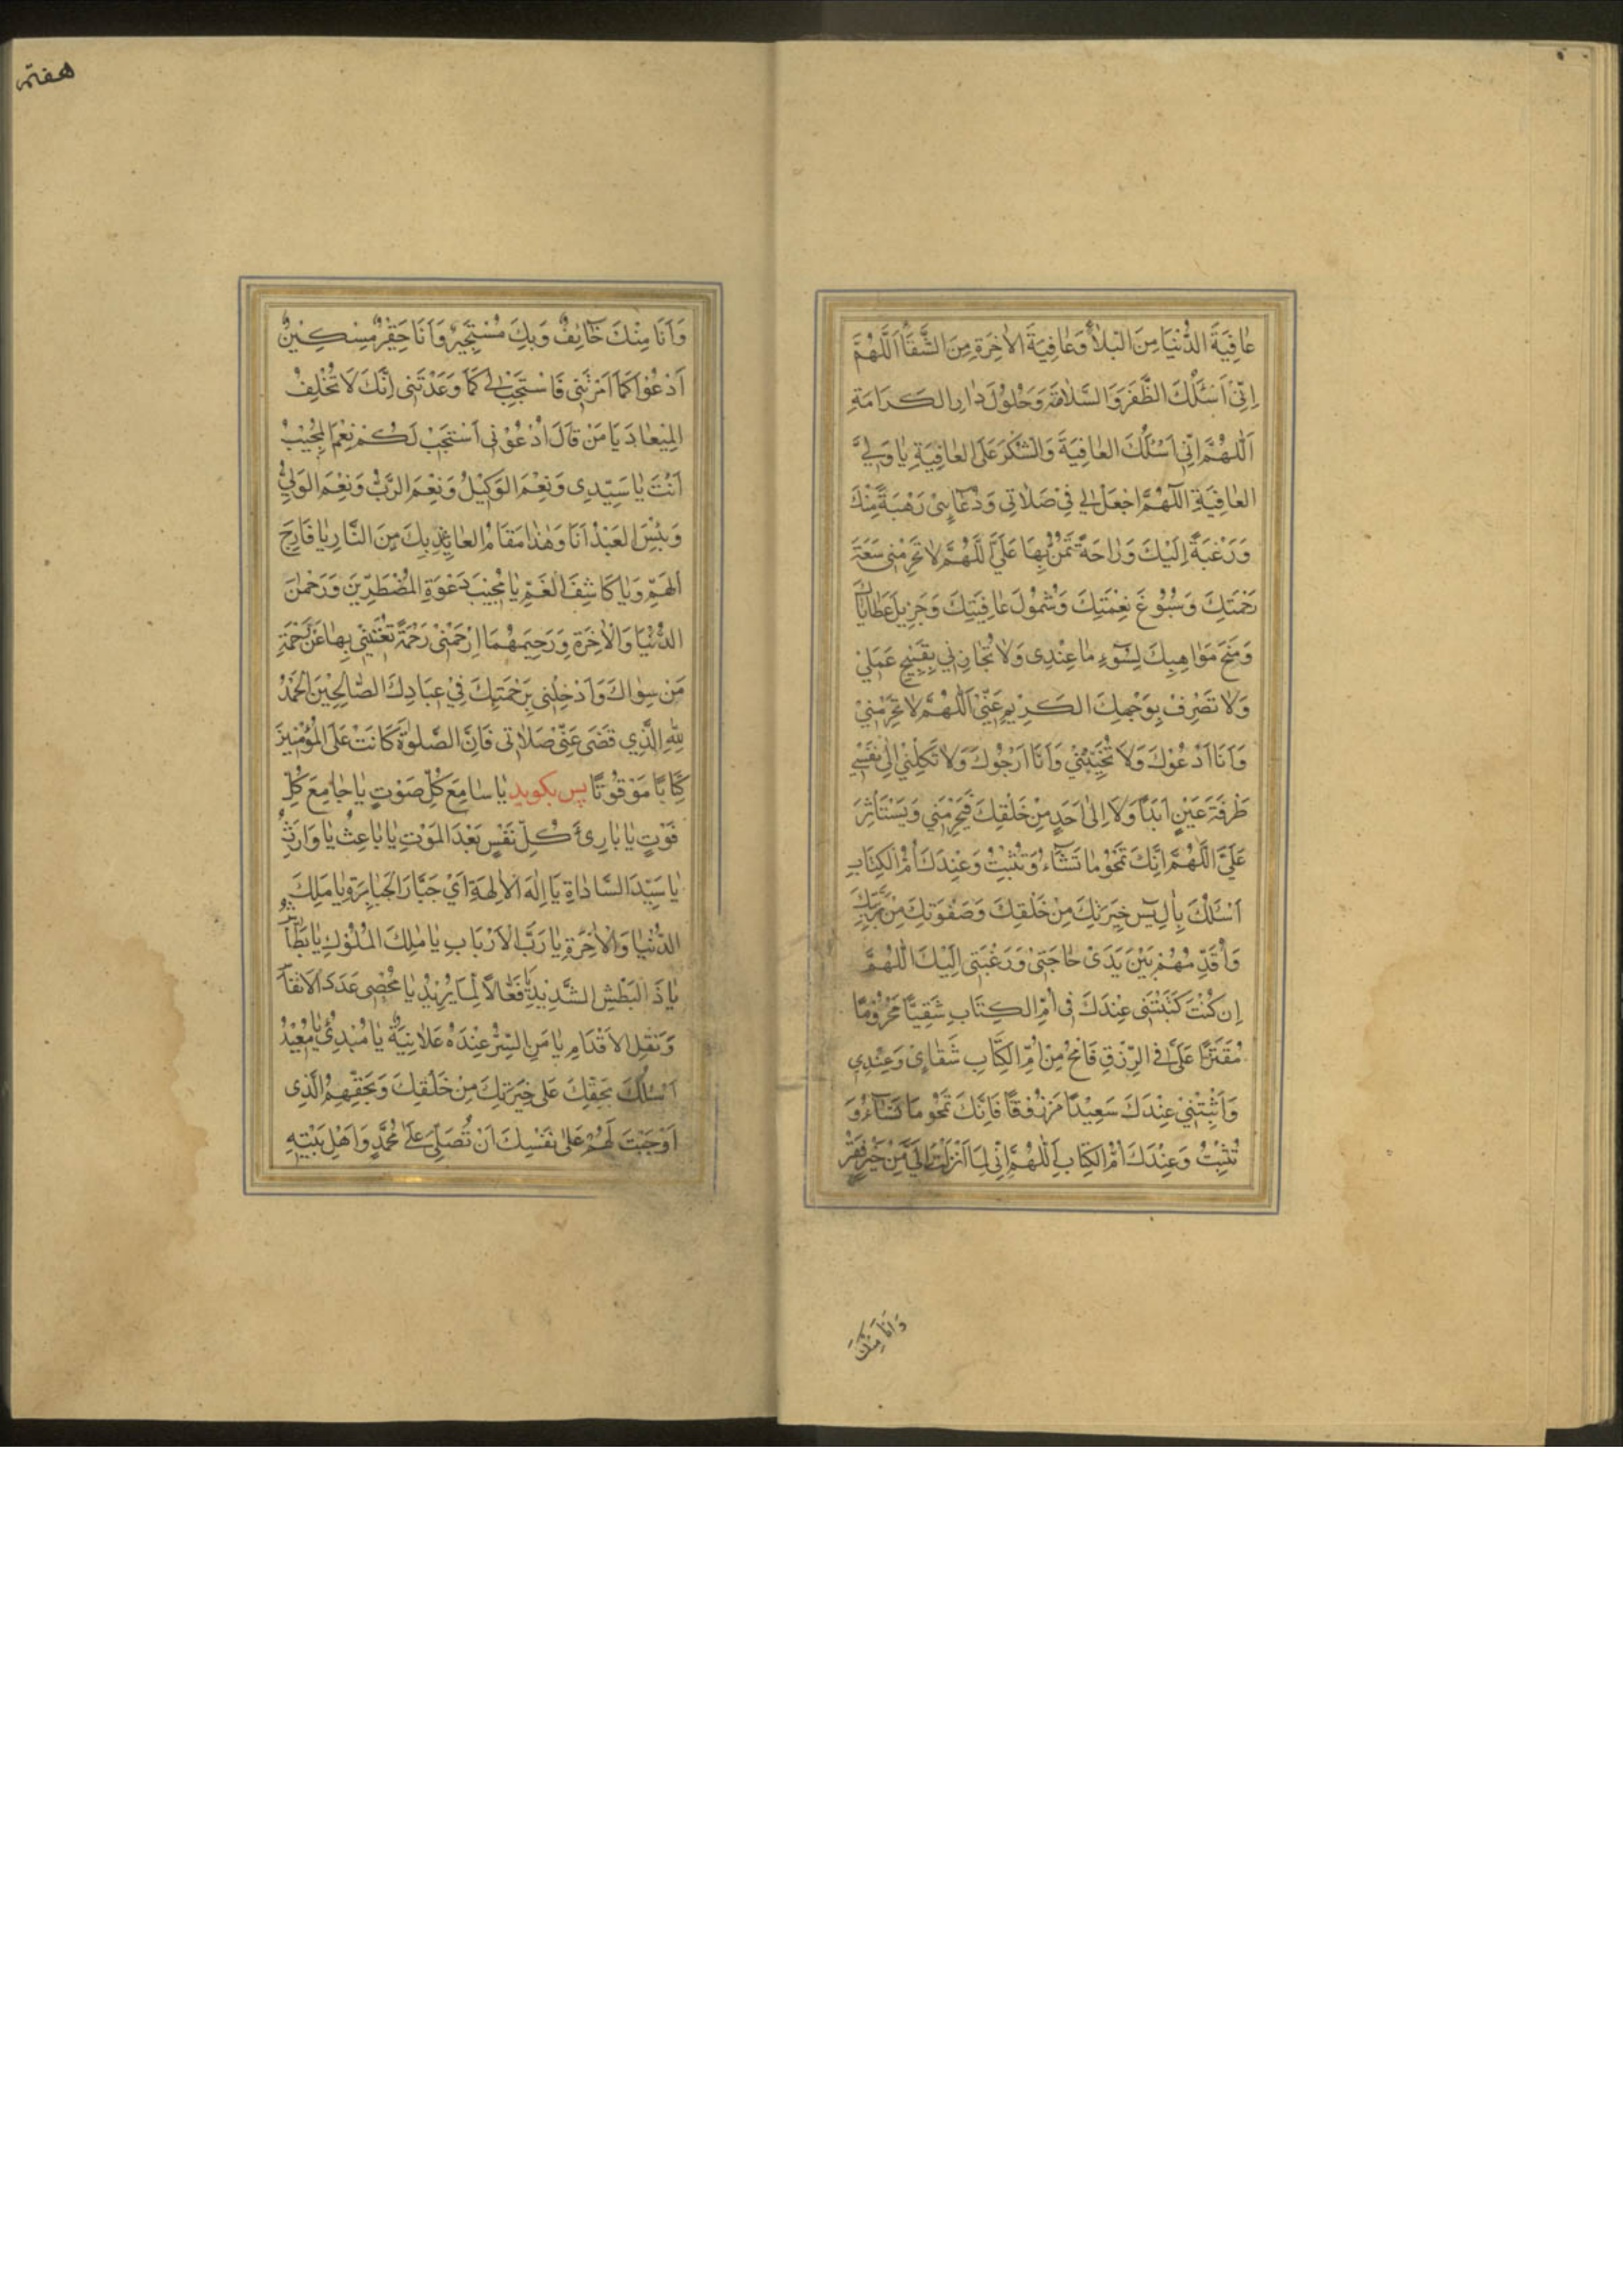 عٰافِيَةَ الدُّنْيَا مِنَ الْبَلٰاۤءِ وَعٰافِيَةَ الْاٰخِرَةِ مِنَ الشَّقَاۤءِ اَللّٰهُمَّ
اِنّي اَسْئَلُكَ الظَّفَرَ وَالسَّلٰامَةَ وَحُلُولَ دٰارِ الْكَرَامَةِ
اَللّٰهُمَّ اِنّي اَسْئَلُكَ الْعٰافِيَةَ وَالشُّكْرَ عَلَى الْعٰافِيَةِ يٰا وَلِيَّ
الْعٰافِيَةِ اَللّٰهُمَّ اجْعَلْ لِي فِيْ صَلٰاتِي وَدُعٰۤائِي رَهْبَةً مِنْكَ
وَرَغْبَةً اِلَيْكَ وَرٰاحَةً تَمُنُّ بِهَا عَلَيَّ اَللّٰهُمَّ لٰا تَحْرِمْنِي سَعَةَ
رَحْمَتِكَ وَسُبُوْغَ نِعْمَتِكَ وَشُمُولَ عٰافِيَتِكَ وَجَزِيلَ عَطٰايٰاكَ
وَمِنَحَ مَوَاهِبِكَ لِسُوۤءِ مٰا عِنْدِى وَلٰا تُجٰازِنِي بِقَبِيْحِ عَمَلِي
وَلٰا تَصْرِفْ بِوَجْهِكَ الْكَرِيْمِ عَنّي اَللّٰهُمَّ لٰا تَحْرِمْنِيْ
وَاَنَا اَدْعُوْكَ وَلَا تُخَيِّبْنِيْ وَاَنَا اَرْجُوْكَ وَلٰا تَكِلْنِيْ اِلٰى نَفْسِي
طَرْفَةَ عَيْنٍ اَبَدًا وَلَا اِلٰى اَحَدٍ مِنْ خَلْقِكَ فَيَحْرِمَنِي وَيَسْتَأْثِرَ
عَلَيَّ اَللّٰهُمَّ اِنَّكَ تَمْحُوْ مٰا تَشٰۤاءُ وَتُثْبِتُ وَعِنْدَكَ اُمُّ الْكِتَابِ
اَسْئَلُكَ بِاٰلِ يٰسۤ خِيَرَتِكَ مِنْ خَلْقِكَ وَصَفْوَتِكَ مِنْ بَرِيَّتِكَ
وَاُقَدِّمُهُمْ بَيْنَ يَدَىْ حٰاجَتِىْ وَرَغْبَتِى اِلَيْكَ اَللّٰهُمَّ
اِن كُنْتَ كَتَبْتَنِى عِنْدَكَ فِى اُمِّ الْكِتَابِ شَقِيًّا مَحْرُوْمًا
مُقَتَّرًا عَلَىَّ فِى الرِّزْقِ فَامْحُ مِنْ اُمِّ الْكِتَابِ شَقٰاۤئِىْ وَ
وَاَثْبِتْنِيْ عِنْدَكَ سَعِيْدًا مَرْزُوْقًا فَاِنَّكَ تَمْحُوْ مَا تَشٰۤاءُ وَ
تُثْبِتُ وَعِنْدَكَ اُمُّ الْكِتٰابِ اَللّٰهُمَّ اِنّي لِمٰا اَنْزَلْتَ اِلَيَّ مِنْ خَيْرٍ فَقِيْرٌ
وَاَنَا مِنْكَ
هفتم
وَاَنَا مِنْكَ خٰۤائِفٌ وَبِكَ مُسْتَجِيْرٌ وَاَنَا حَقِيْرٌ مِسْكِيْنٌ
اَدْعُوْكَ كَمَا اَمَرْتَنِي فَاسْتَجِبْ لِي كَمَا وَعَدْتَنِى اِنَّكَ لَا تُخْلِفُ
الْمِيْعٰادَ يَا مَنْ قٰالَ اُدْعُوْنِي اَسْتَجِبْ لَكُمْ نِعْمَ الْمُجِيْبُ
اَنْتَ يٰا سَيِّدِى وَنِعْمَ الْوَكِيْلُ وَنِعْمَ الرَّبُّ وَنِعْمَ الْوَلِيُّ
وَبِئْسَ الْعَبْدُ اَنَا وَهٰذٰا مَقَامُ الْعٰائِذِ بِكَ مِنَ النَّارِ يٰا فَارِجَ
الْهَمِّ وَيٰا كَاشِفَ الْغَمِّ يٰا مُجِيْبَ دَعْوَةِ الْمُضْطَرِّيْنَ وَرَحْمٰنَ
الدُّنْيَا وَالْاٰخِرَةِ وَرَحِيمَهُمَا اِرْحَمْنِىْ رَحْمَةً تُغْنِيْنِي بِهٰا عَنْ رَحْمَةِ
مَنْ سِوٰاكَ وَاَدْخِلْنِى بِرَحْمَتِكَ فِيْ عِبَادِكَ الصّٰالِحِيْنَ الْحَمْدُ
لِلّٰهِ الَّذِي قَضٰى عَنّيْ صَلٰاتِى فَاِنَّ الصَّلٰوةَ كَانَتْ عَلَى الْمُؤْمِنِيْنَ
كِتَابًا مَوْقُوْتًا پس بكويد يٰا سٰامِعَ كُلِّ صَوْتٍ يٰا جٰامِعَ كُلِّ
فَوْتٍ يٰا بٰارِئَ كُلِّ نَفْسٍ بَعْدَ الْمَوْتِ يٰا بٰاعِثُ يٰا وَارِثُ
يٰا سَيِّدَ السَّادٰاةِ يَا اِلٰهَ الْاٰلِهَةِ اَيْ جَبَّارَ الْجَبٰابِرَةِ يٰا مَلِكَ
الدُّنْيٰا وَالْاٰخِرَةِ يٰا رَبَّ الْاَرْبَابِ يٰا مَلِكَ الْمُلُوْكِ يٰا بَطّٰاشُ
يٰا ذَا الْبَطْشِ الشَّدِيْدِ يٰا فَعّٰالًا لِمٰا يُرِيْدُ يٰا مُحْصِىَ عَدَدِ الْاَنْفٰاسِ
وَنَقْلِ الْاَقْدَامِ يٰا مَنِ السِّرُّ عِنْدَهُ عَلٰانِيَةٌ يٰا مُبْدِئُ يٰا مُعِيْدُ
اَسْئَلُكَ بِحَقِّكَ عَلٰى خِيَرَتِكَ مِنْ خَلْقِكَ وَبِحَقِّهِمُ الَّذِى
اَوْجَبْتَ لَهُمْ عَلٰى نَفْسِكَ اَنْ تُصَلِّيَ عَلٰى مُحَمَّدٍ وَاَهْلِ بَيْتِهِ